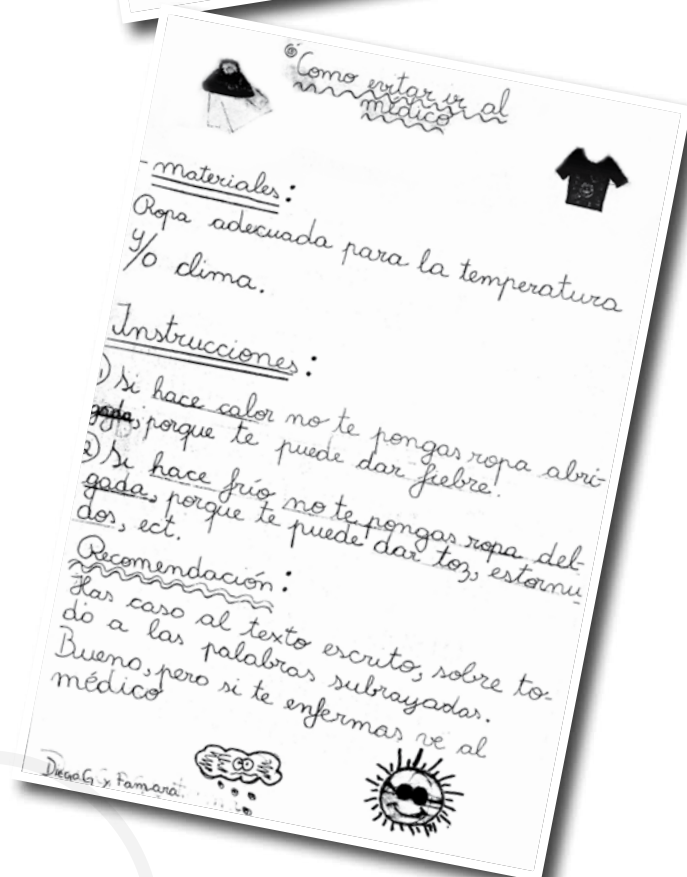 Como evitar ir al
médico
- materiales:
Ropa adecuada para la temperatura
y/o clima.
Instrucciones:
1) Si hace calor no te pongas ropa abri-
gada, porque te puede dar fiebre.
2) Si hace frío no te pongas ropa del-
gada, porque te puede dar toz, estornu
dos, ect.
Recomendación:
Has caso al texto escrito, sobre to-
do a las palabras subrayadas.
Bueno, pero si te enfermas ve al
médico
Diego G y Famara.